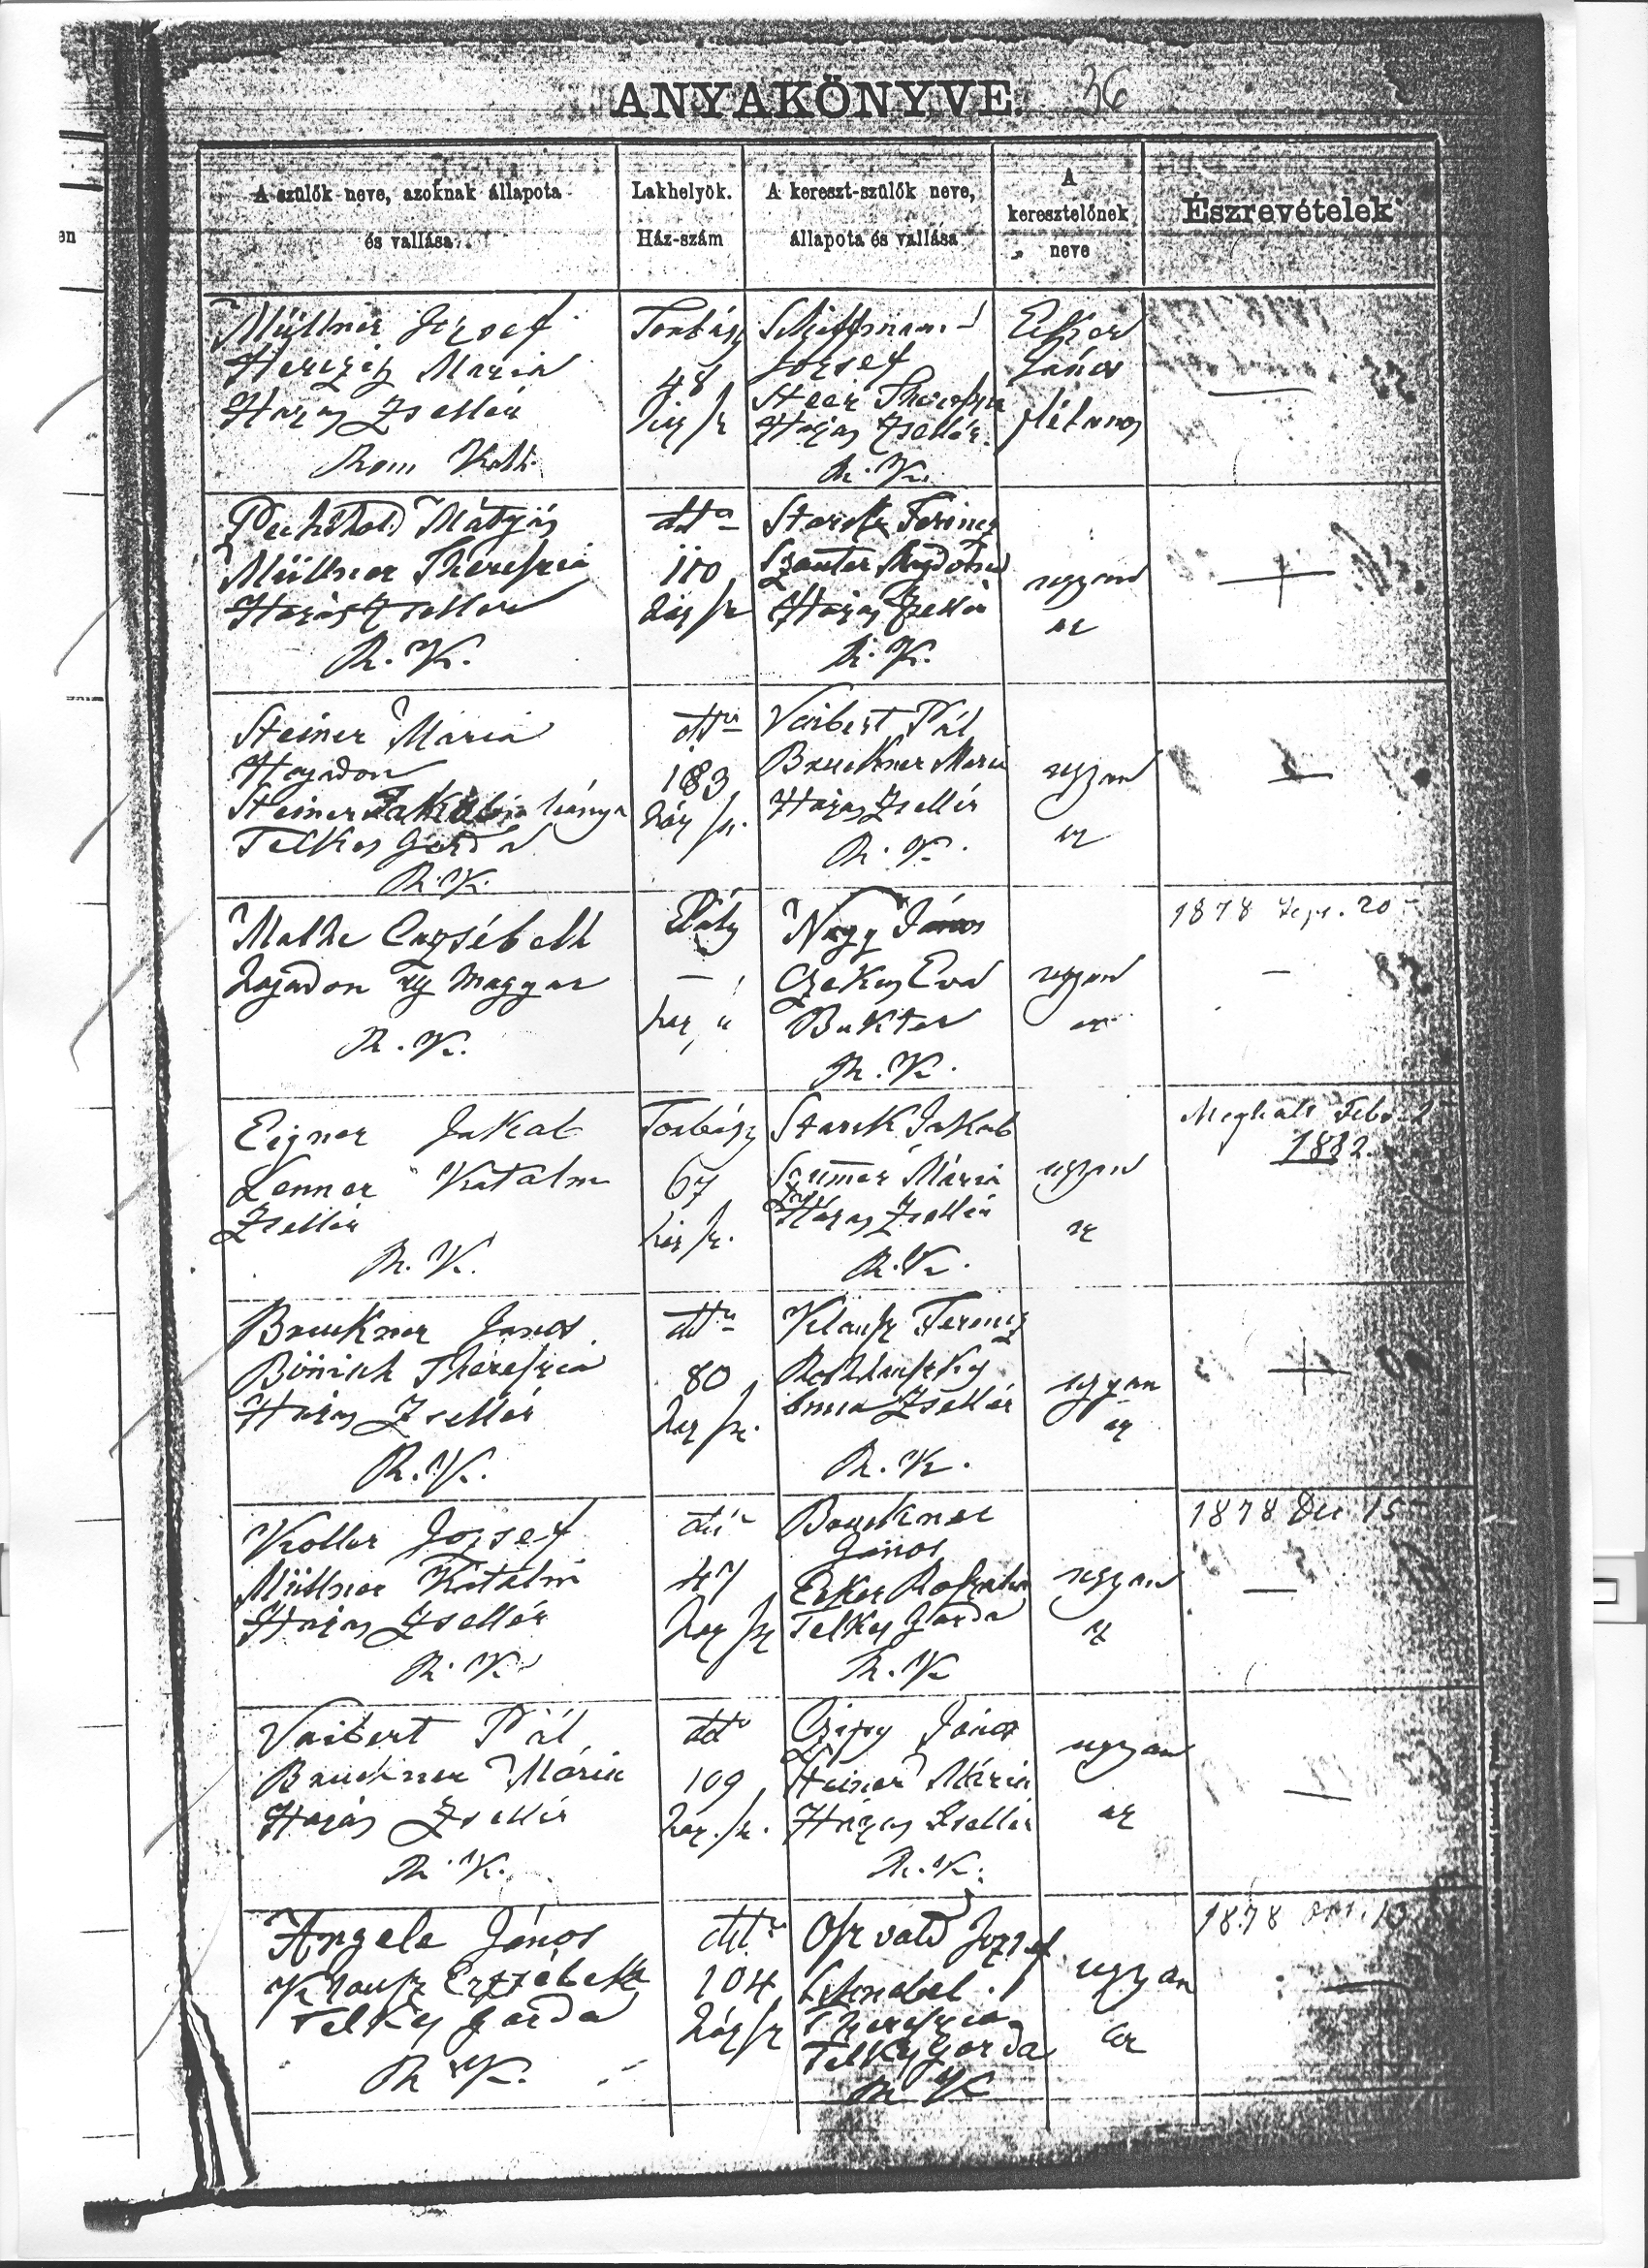 ANYAKÖNYVE. 36
A szülők neve, azoknak állapota
és vallása
Lakhelyök.
Ház-szám
A kereszt-szülők neve,
állapota és vallása
A
keresztelőnek
neve
Észrevételek
en
Müllner József
Herczig Maria
Házas Zsellér
Rom Kath.
Torbágy
48
ház sz
József
Házas Zsellér
R. K.
Ecker
János
plébanos
Mátyás
Müllner Thereszia
Házas Zsellér
R. K.
dtto
110
ház sz
Ferincz
Házas Zsellér
R. K.
ugyan
az
Steiner Maria
Hajadon
Steiner Jakab leánya
Telkes Gazda
R. K.
dtto
183
ház sz.
Vaibert Pál
Bruckner Maria
Házas Zsellér
R. K.
ugyan
az
Erzsébeth
hajadon Magyar
R. K.
Páty
—
Nagy János
Éva
Bakter
R. K.
ugyan
az
1878 Sept. 20
—
Eigner Jakab
Lenner Katalin
Zsellér
R. K.
Torbágy
67
ház sz.
Starck Jakab
Mária
Házas Zsellér
R. K.
ugyan
az
Meghalt Febr
1882.
Bruckner János
Bönisch Thereszia
Házas Zsellér
R. K.
dtto
80
ház sz.
Klausz Ferencz
Anna Zsellér
R. K.
ugyan
az
Koller József
Müllner Katalin
Házas Zsellér
R. K.
dtto
47
ház sz
Bruckner
János
Ecker Rozalia
Telkes Gazda
R. K
ugyan
az
1878 Dec 15
—
Vaibert Pál
Bruckner Mária
Házas Zsellér
R. K.
dtto
109
ház. sz.
János
Steiner Mária
Házas Zsellér
R. K.
ugyan
az
—
Angele János
Klausz Erzsébeth
Telkes Gazda
R. K.
dtto
104
ház sz
Oszvald József
Schnabel
Thereszia
Telkes Gazda
R K
ugyan
az
1878 Okt. 13
—